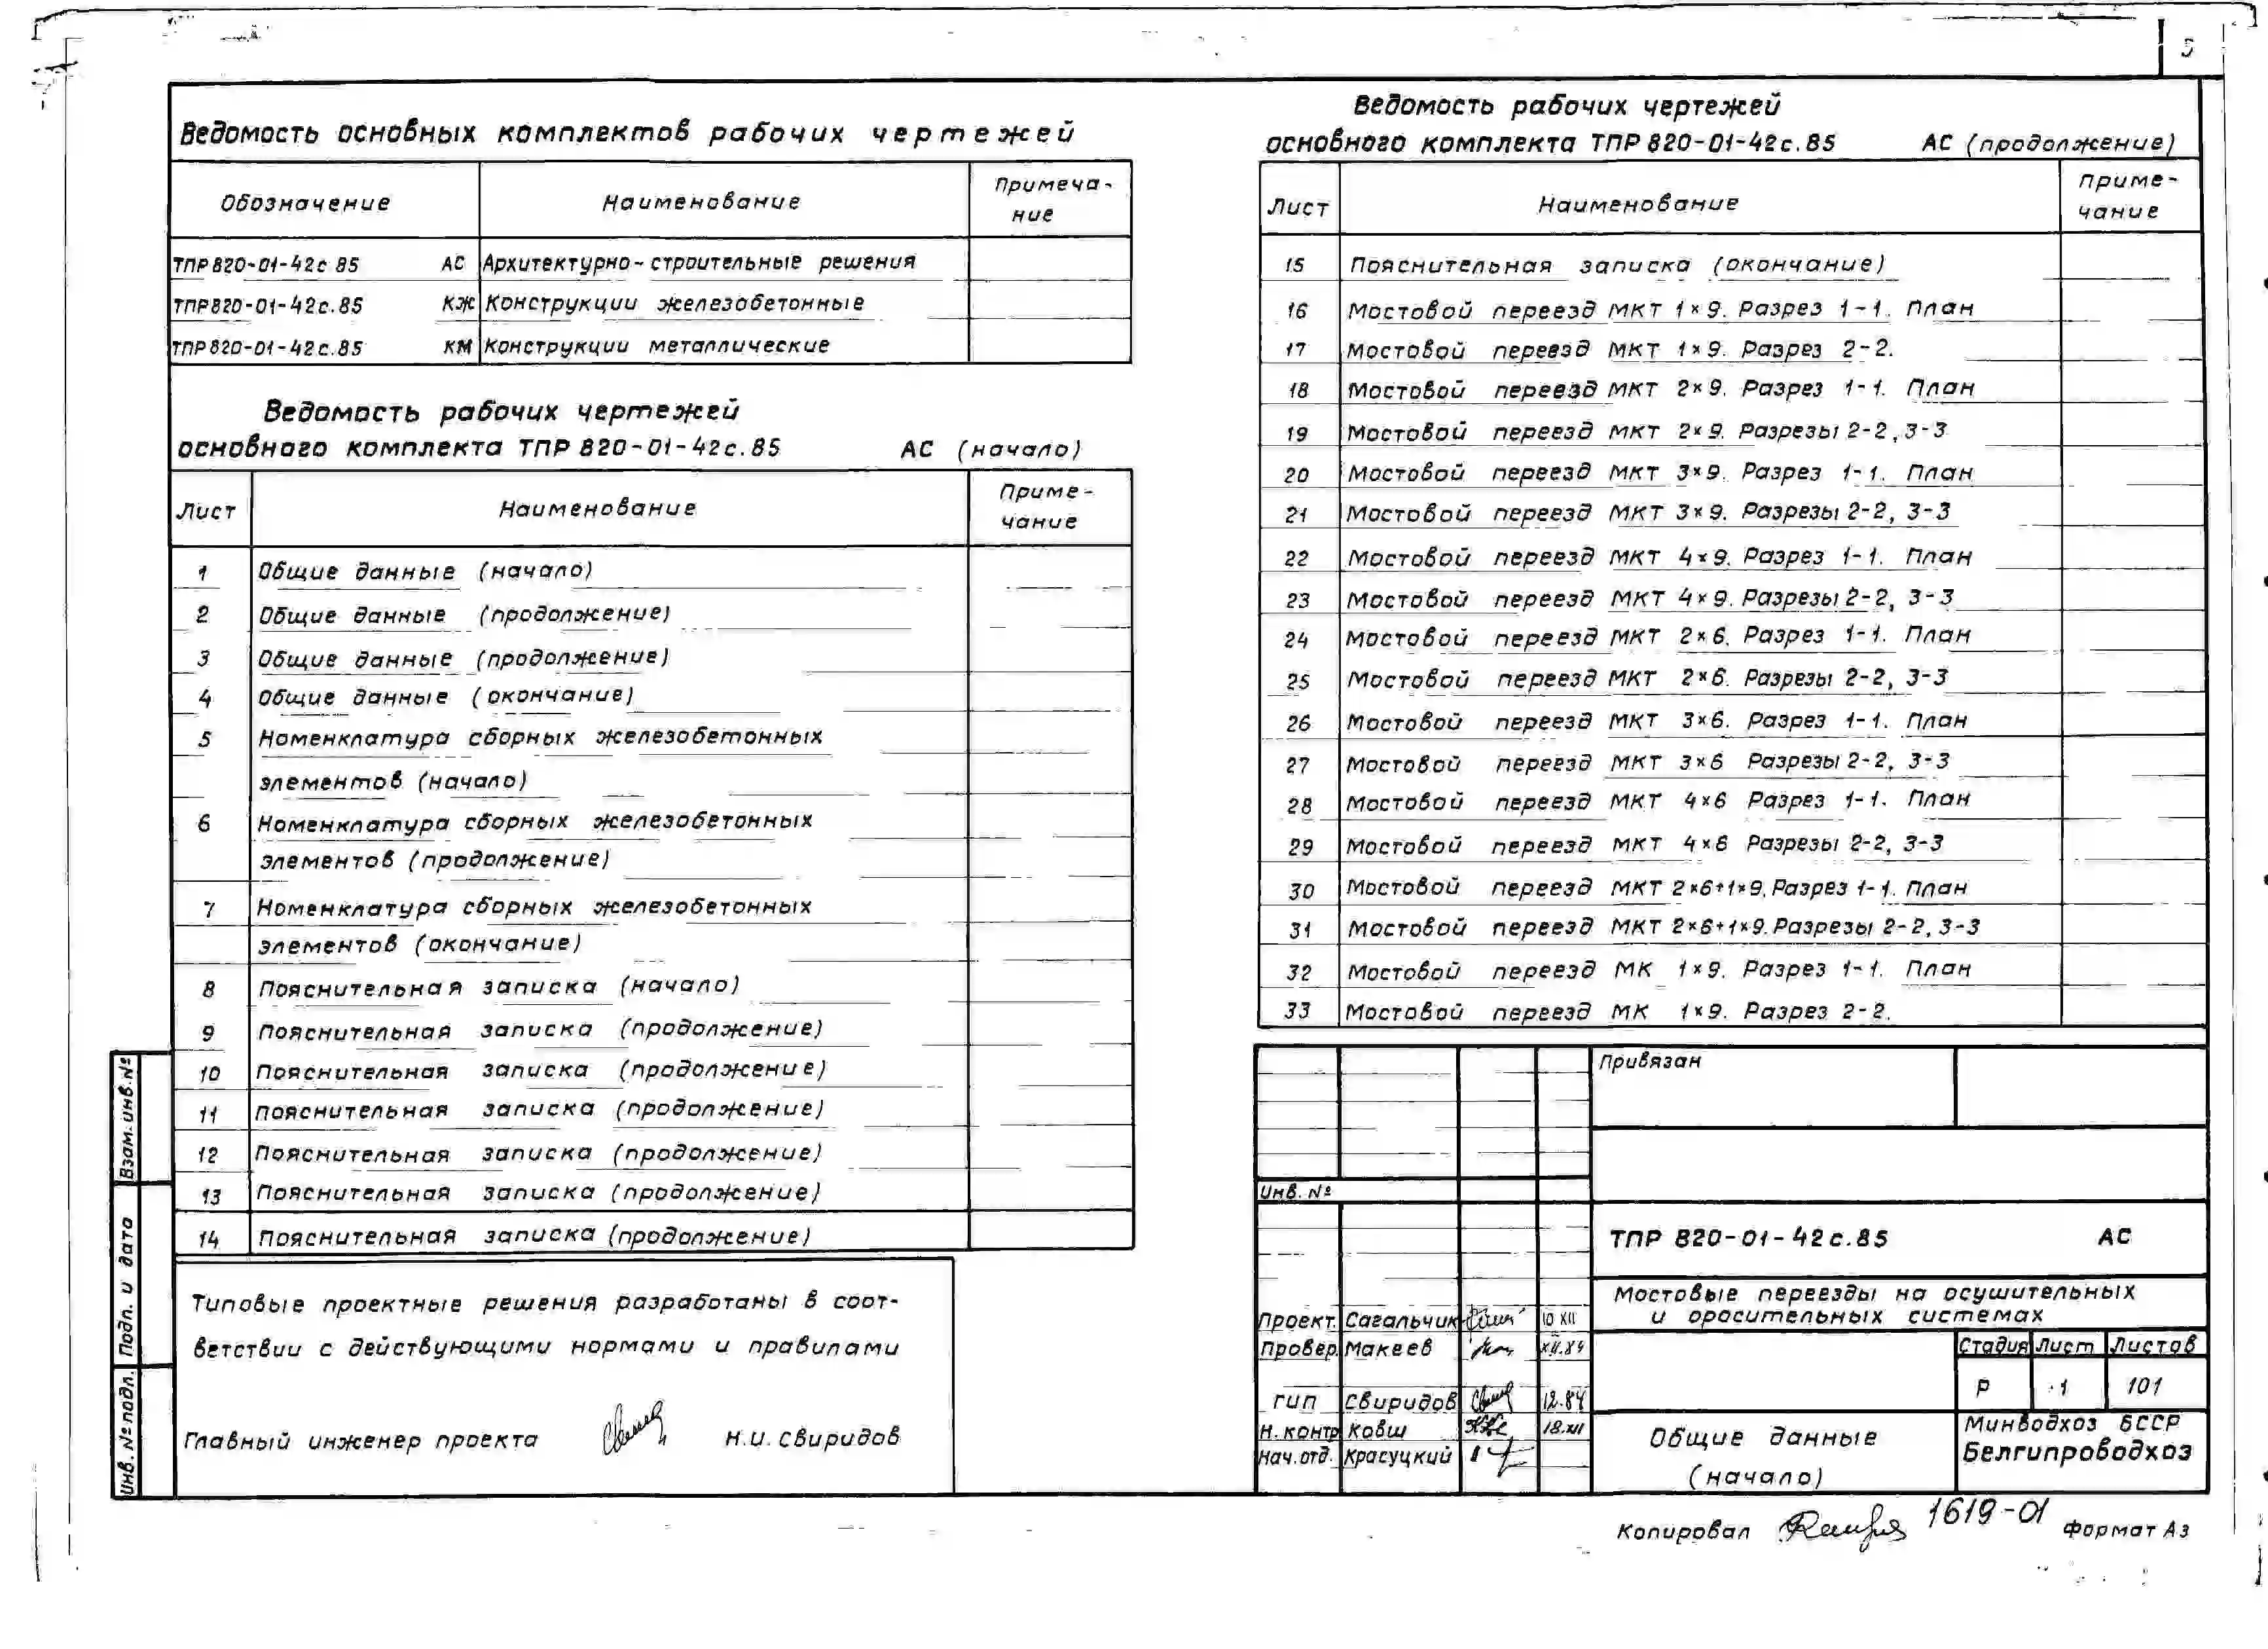 5
Ведомость основных комплектов рабочих чертежей
Обозначение Наименование Примеча-
ние
ТПР 820-01-42с 85 АС Архитектурно-строительные решения
ТПР 820-01-42с.85 КЖ Конструкции железобетонные
ТПР 820-01-42с.85 КМ Конструкции металлические
Ведомость рабочих чертежей
основного комплекта ТПР 820-01-42с.85 АС (начало)
Лист Наименование Приме-
чание
1 Общие данные (начало)
2 Общие данные (продолжение)
3 Общие данные (продолжение)
4 Общие данные (окончание)
5 Номенклатура сборных железобетонных
элементов (начало)
6 Номенклатура сборных железобетонных
элементов (продолжение)
7 Номенклатура сборных железобетонных
элементов (окончание)
8 Пояснительная записка (начало)
9 Пояснительная записка (продолжение)
10 Пояснительная записка (продолжение)
11 Пояснительная записка (продолжение)
12 Пояснительная записка (продолжение)
13 Пояснительная записка (продолжение)
14 Пояснительная записка (продолжение)
Типовые проектные решения разработаны в соот-
ветствии с действующими нормами и правилами
Главный инженер проекта Н.И. Свиридов
Взам. инв. №
Подп. и дата
Инв. № подл.
Ведомость рабочих чертежей
основного комплекта ТПР 820-01-42с.85 АС (продолжение)
Лист Наименование Приме-
чание
15 Пояснительная записка (окончание)
16 Мостовой переезд МКТ 1×9. Разрез 1-1. План
17 Мостовой переезд МКТ 1×9. Разрез 2-2.
18 Мостовой переезд МКТ 2×9. Разрез 1-1. План
19 Мостовой переезд МКТ 2×9. Разрезы 2-2, 3-3
20 Мостовой переезд МКТ 3×9. Разрез 1-1. План
21 Мостовой переезд МКТ 3×9. Разрезы 2-2, 3-3
22 Мостовой переезд МКТ 4×9. Разрез 1-1. План
23 Мостовой переезд МКТ 4×9. Разрезы 2-2, 3-3
24 Мостовой переезд МКТ 2×6. Разрез 1-1. План
25 Мостовой переезд МКТ 2×6. Разрезы 2-2, 3-3
26 Мостовой переезд МКТ 3×6. Разрез 1-1. План
27 Мостовой переезд МКТ 3×6 Разрезы 2-2, 3-3
28 Мостовой переезд МКТ 4×6 Разрез 1-1. План
29 Мостовой переезд МКТ 4×6 Разрезы 2-2, 3-3
30 Мостовой переезд МКТ 2×6+1×9. Разрез 1-1. План
31 Мостовой переезд МКТ 2×6+1×9. Разрезы 2-2, 3-3
32 Мостовой переезд МК 1×9. Разрез 1-1. План
33 Мостовой переезд МК 1×9. Разрез 2-2.
Привязан
Инв. №
ТПР 820-01-42с.85 АС
Мостовые переезды на осушительных
и оросительных системах
Проект. Сагальчик 10 XII
Провер. Макеев XII.84
ГИП Свиридов 12.84
Н. контр Ковш 18.XII
Нач. отд. Красуцкий
Стадия Лист Листов
Р 1 101
Общие данные
(начало)
Минводхоз БССР
Белгипроводхоз
Копировал 1619-01 Формат А3